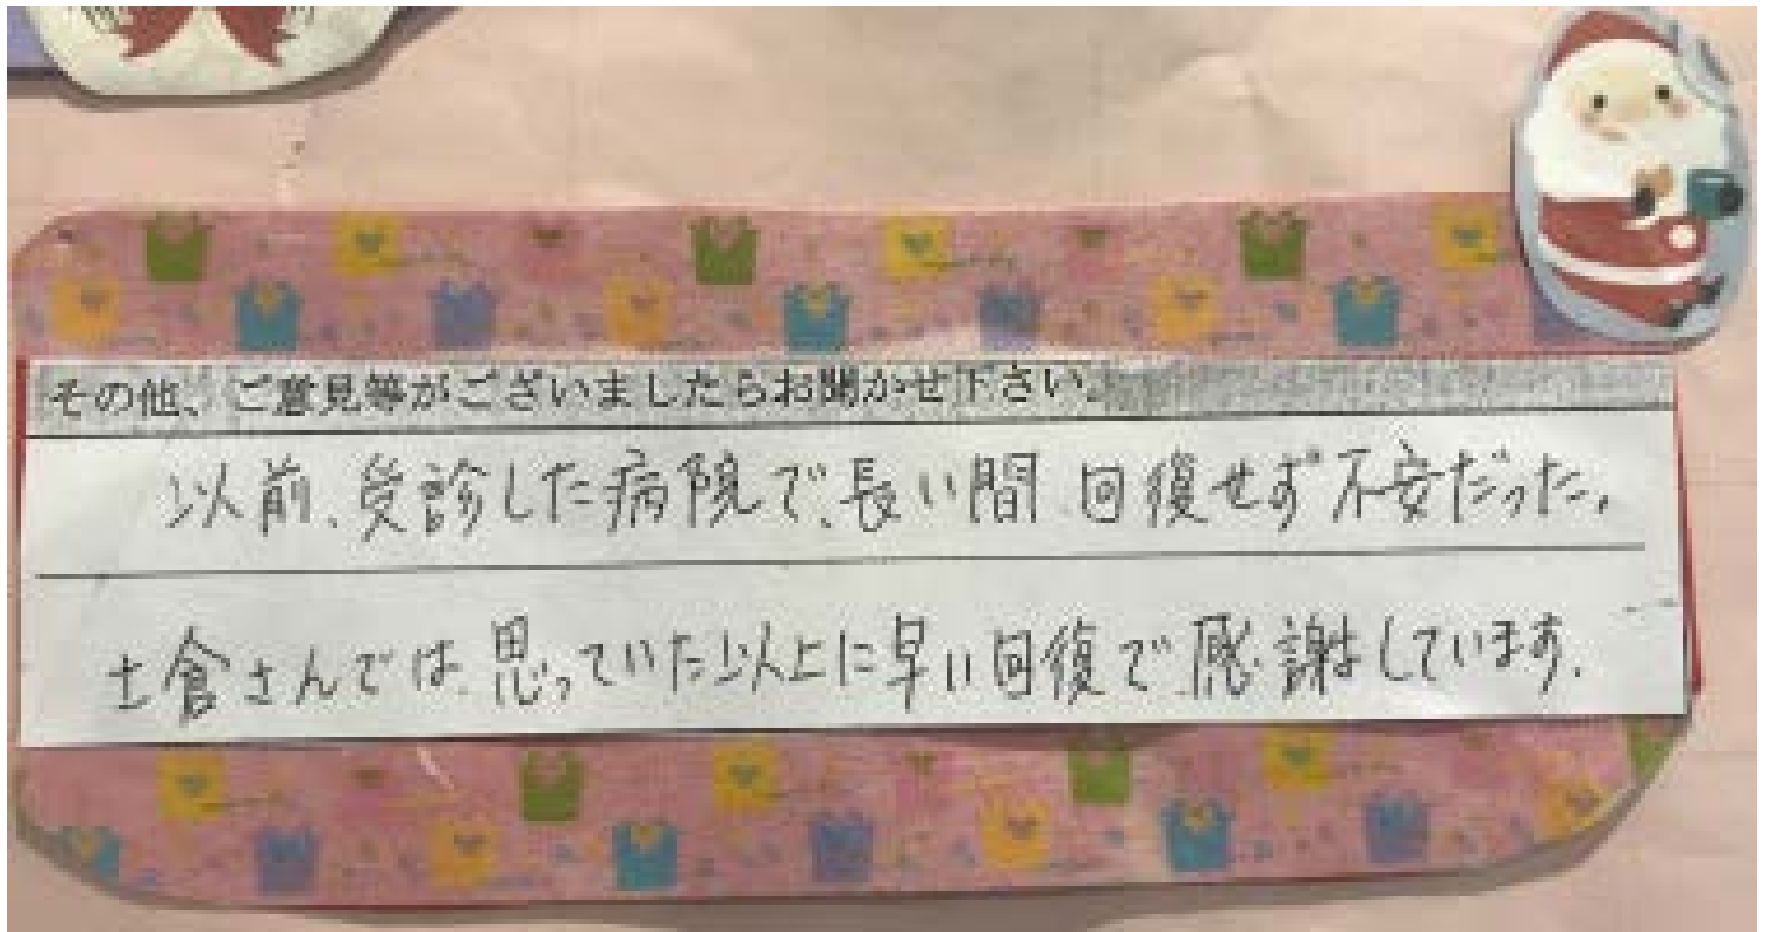 その他、ご意見等がございましたらお聞かせ下さい。
以前、受診した病院で、長い間、回復せず不安だった。
土倉さんでは、思っていた以上に早い回復で、感謝しています。